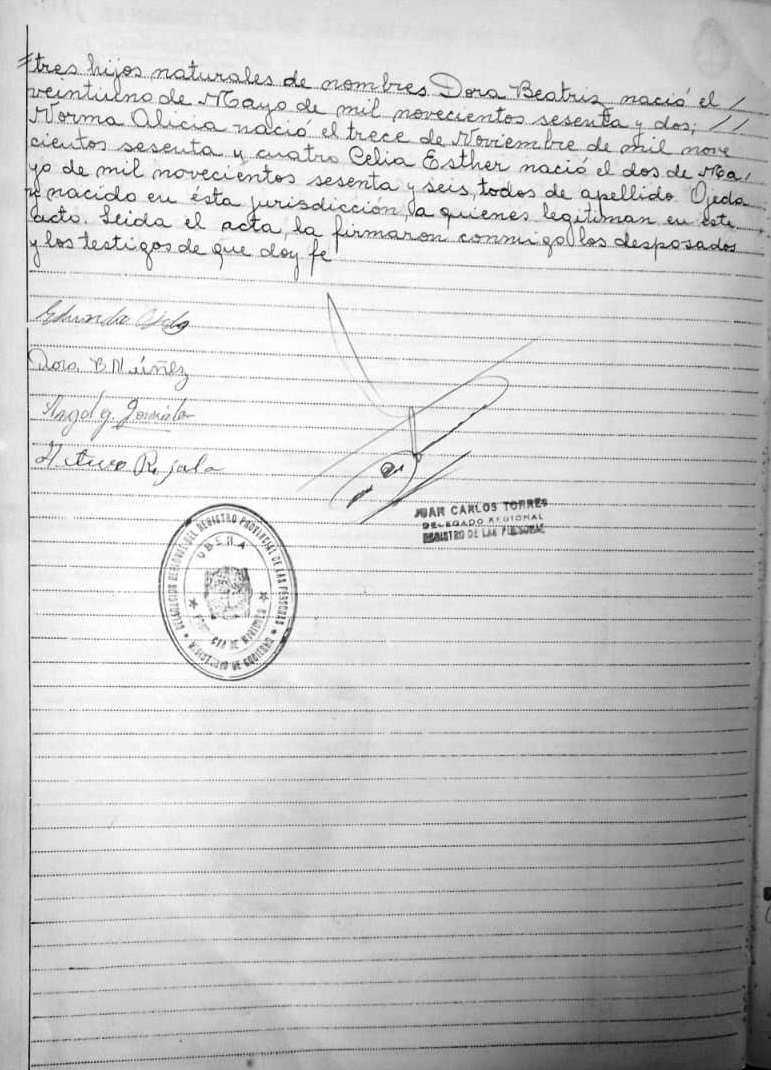 tres hijos naturales de nombres Dora Beatriz nació el /
veintiuno de Mayo de mil novecientos sesenta y dos; //
Norma Alicia nació el trece de Noviembre de mil nove
cientos sesenta y cuatro Celia Esther nació el dos de Ma/
yo de mil novecientos sesenta y seis, todos de apellido Ojeda
y nacido en ésta jurisdicción, a quienes legitiman en este
acto. Leida el acta, la firmaron conmigo los desposados
y los testigos de que doy fe
Dora B Núñez
Angel G. González
Arturo R
JUAN CARLOS TORRES
DELEGADO REGIONAL
REGISTRO DE LAS PERSONAS
DELEGACION REGIONAL DEL REGISTRO PROVINCIAL DE LAS PERSONAS
OBERA
PROVINCIA DE MISIONES
MINISTERIO DE GOBIERNO